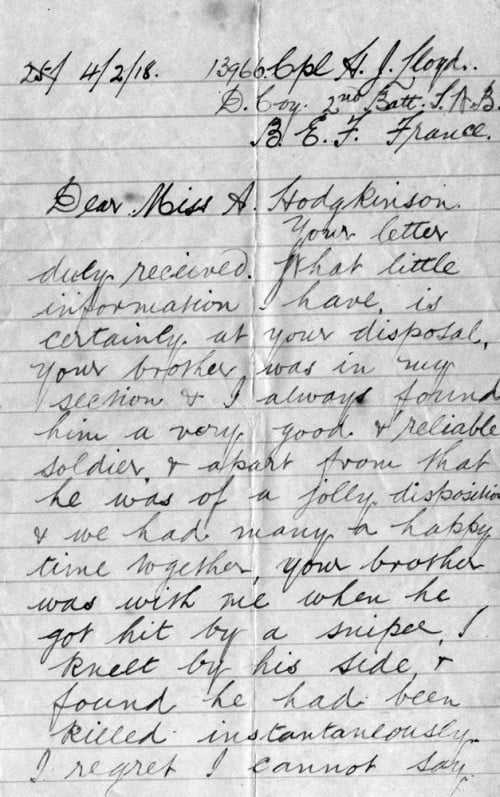 25/ 4/2/18. 13966 Cpl H. J. Lloyd.
D. Coy. 2nd Batt. S.W.B.
B. E. F. France.
Dear Miss A. Hodgkinson.
Your letter
duly received. What little
information I have, is
certainly at your disposal,
your brother was in my
section & I always found
him a very good & reliable
soldier, & apart from that
he was of a jolly disposition
& we had many a happy
time together, your brother
was with me when he
got hit by a sniper, I
knelt by his side, &
found he had been
killed instantaneously
I regret I cannot say